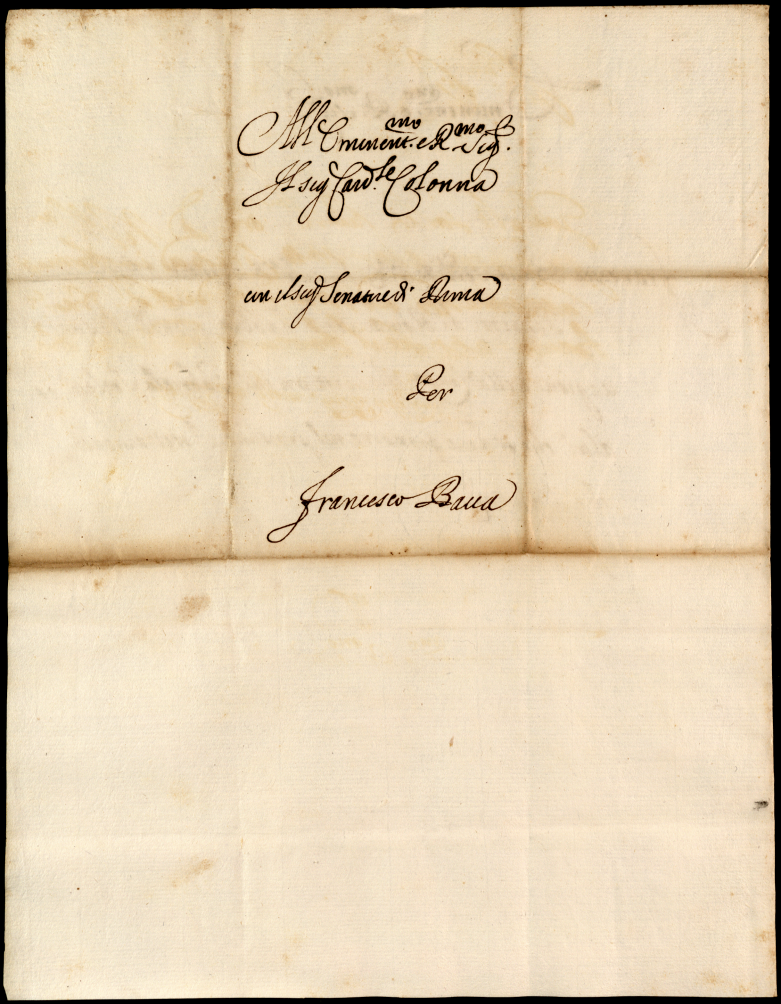 All Eminent.mo e R.mo Sig.r
Il sig Card.le Colonna
con il sig Senatore di Roma
Per
Francesco Bacca